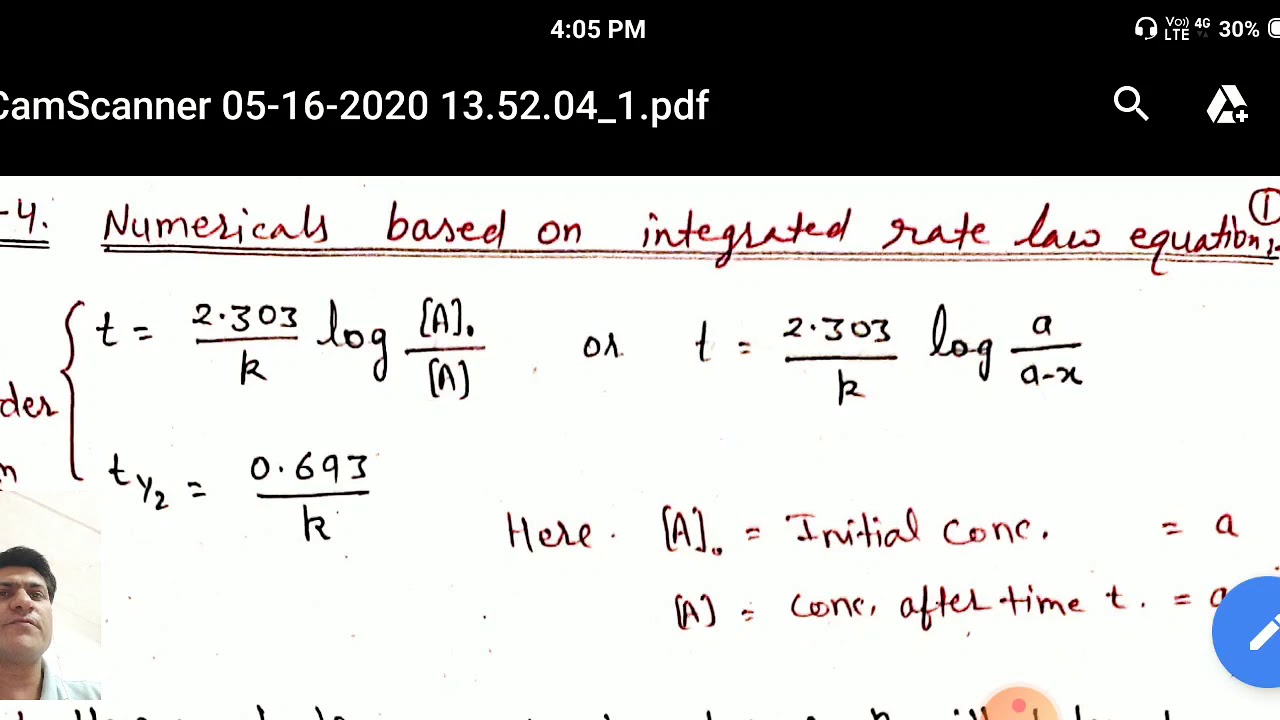 4:05 PM
Vo)) LTE 4G 30%
CamScanner 05-16-2020 13.52.04_1.pdf
-4. Numericals based on integrated rate law equation:- ①
t = 2.303/k log [A]₀/[A] or t = 2.303/k log a/a-x
der
t½ = 0.693/k
n
Here. [A]₀ = Initial conc. = a
[A] = conc. after time t. = a